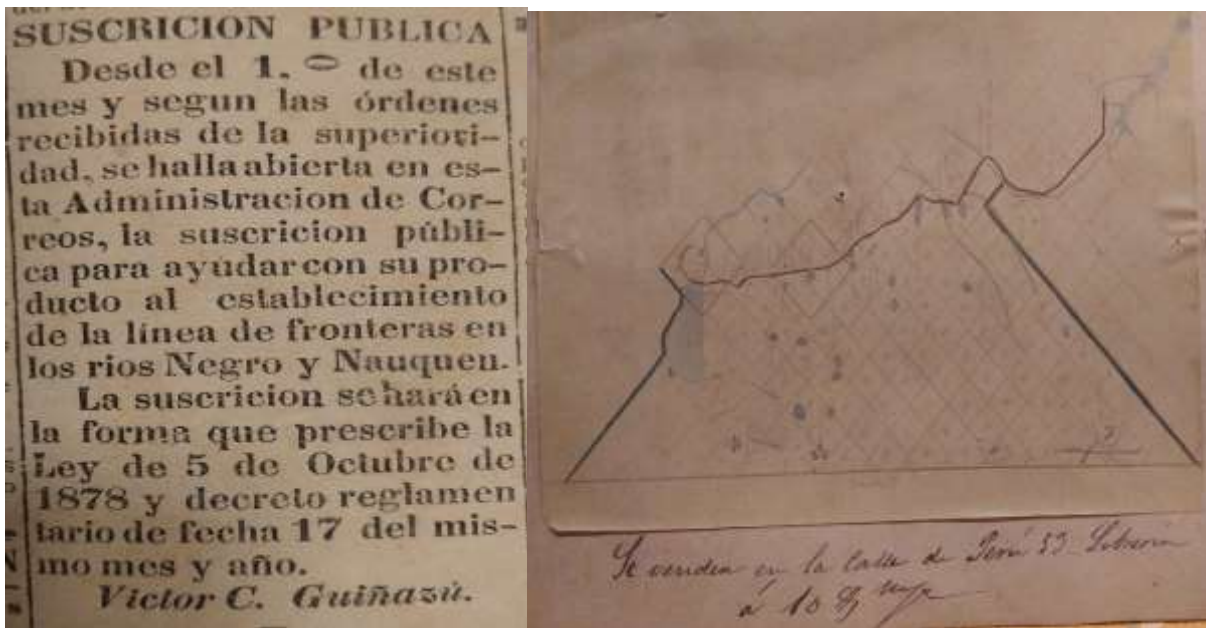 SUSCRICION PUBLICA
Desde el 1.º de este
mes y segun las órdenes
recibidas de la superiori-
dad, se halla abierta en es-
ta Administracion de Cor-
reos, la suscricion públi-
ca para ayudar con su pro-
ducto al establecimiento
de la línea de fronteras en
los rios Negro y Nauquen.
La suscricion se hará en
la forma que prescribe la
Ley de 5 de Octubre de
1878 y decreto reglamen
tario de fecha 17 del mis-
mo mes y año.
Victor C. Guiñazú.
Se venden en la Calle de Perú 53 Librería
á 10 $